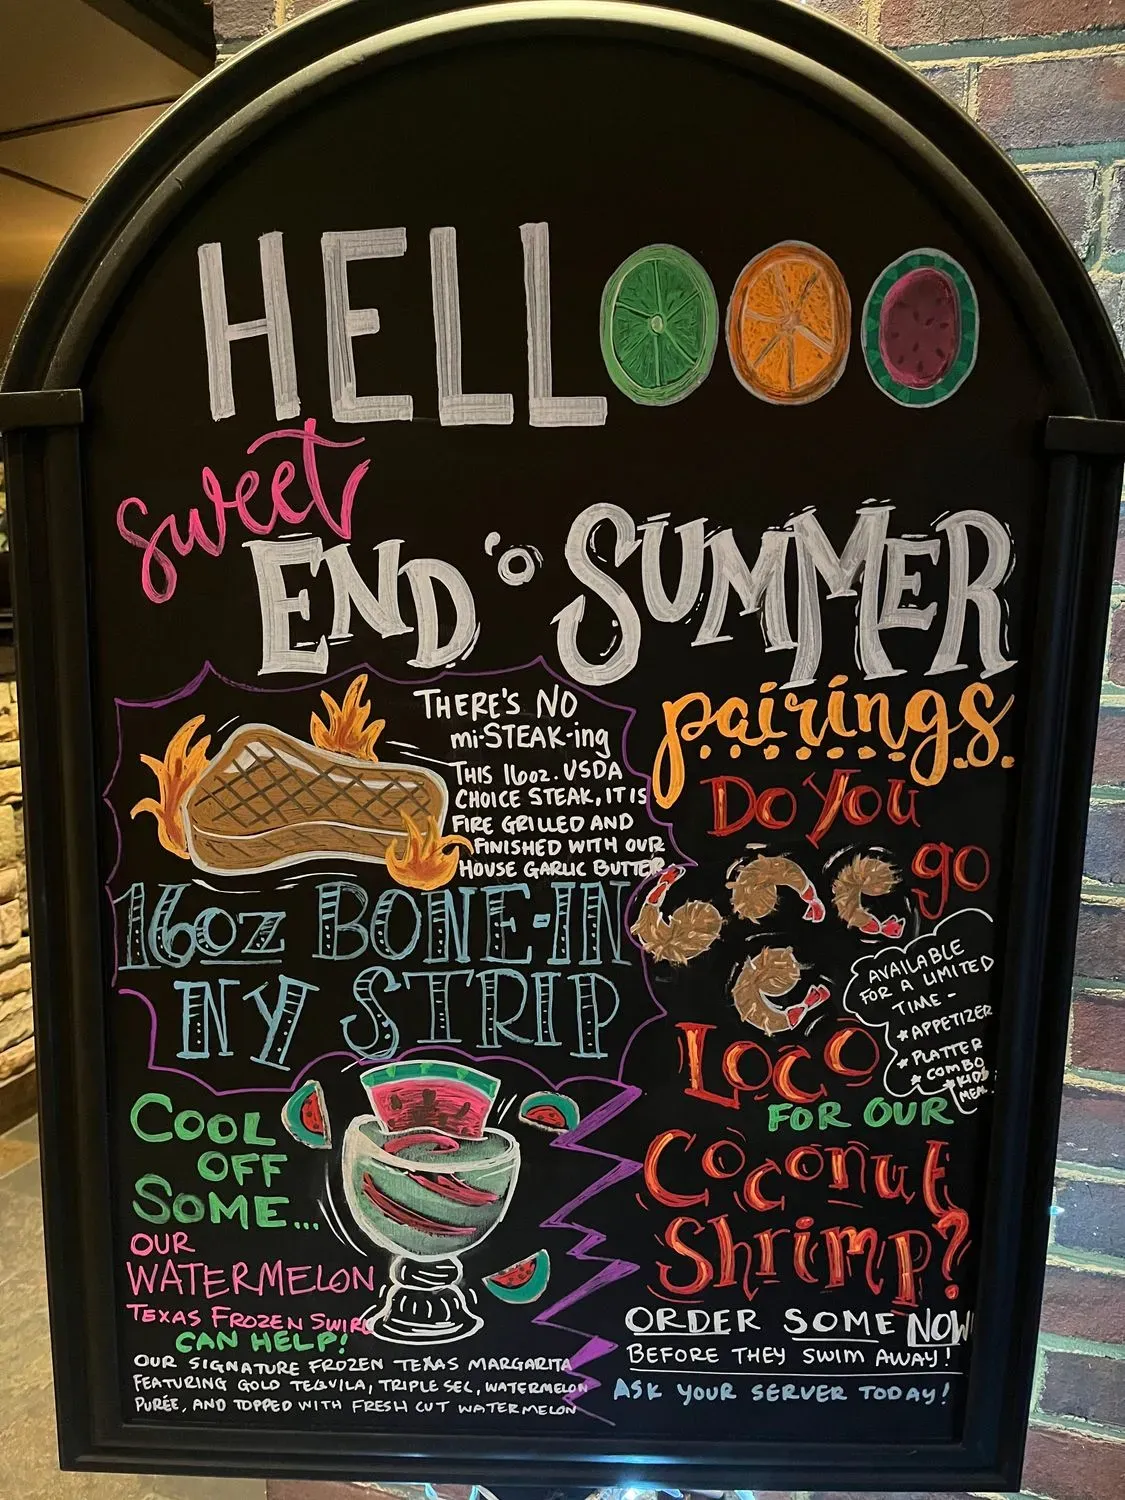 HELLOOO
sweet
END 'O SUMMER
pairings
THERE'S NO
mi-STEAK-ing
THIS 16oz. USDA
CHOICE STEAK, IT IS
FIRE GRILLED AND
FINISHED WITH OUR
HOUSE GARLIC BUTTER
16oz BONE-IN
NY STRIP
COOL
OFF
SOME...
OUR
WATERMELON
TEXAS FROZEN SWIRL
CAN HELP!
OUR SIGNATURE FROZEN TEXAS MARGARITA
FEATURING GOLD TEQUILA, TRIPLE SEC, WATERMELON
PURÉE, AND TOPPED WITH FRESH CUT WATERMELON
DO YOU
go
LOCO
FOR OUR
Coconut
Shrimp?
AVAILABLE
FOR A LIMITED
TIME -
*APPETIZER
*PLATTER
*COMBO
*KIDS
MEAL
ORDER SOME NOW
BEFORE THEY SWIM AWAY!
ASK YOUR SERVER TODAY!